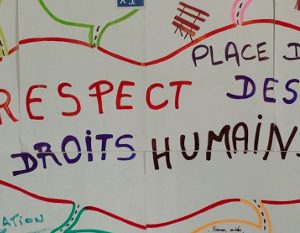 PLACE D
RESPECT DES
DROITS HUMAIN
ATION